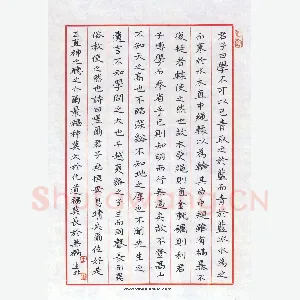 君子曰學不可以已青取之於藍而青於藍冰水為之
而寒於水木直中繩輮以為輪其曲中規雖有槁暴不
復挺者輮使之然也故木受繩則直金就礪則利君
子博學而日參省乎己則知明而行無過矣故不登高山
不知天之高也不臨深谿不知地之厚也不聞先王之
遺言不知學問之大也干越夷貉之子生而同聲長而異
俗教使之然也詩曰嗟爾君子無恆安息靖共爾位好是
正直神之聽之介爾景福神莫大於化道福莫長於無禍